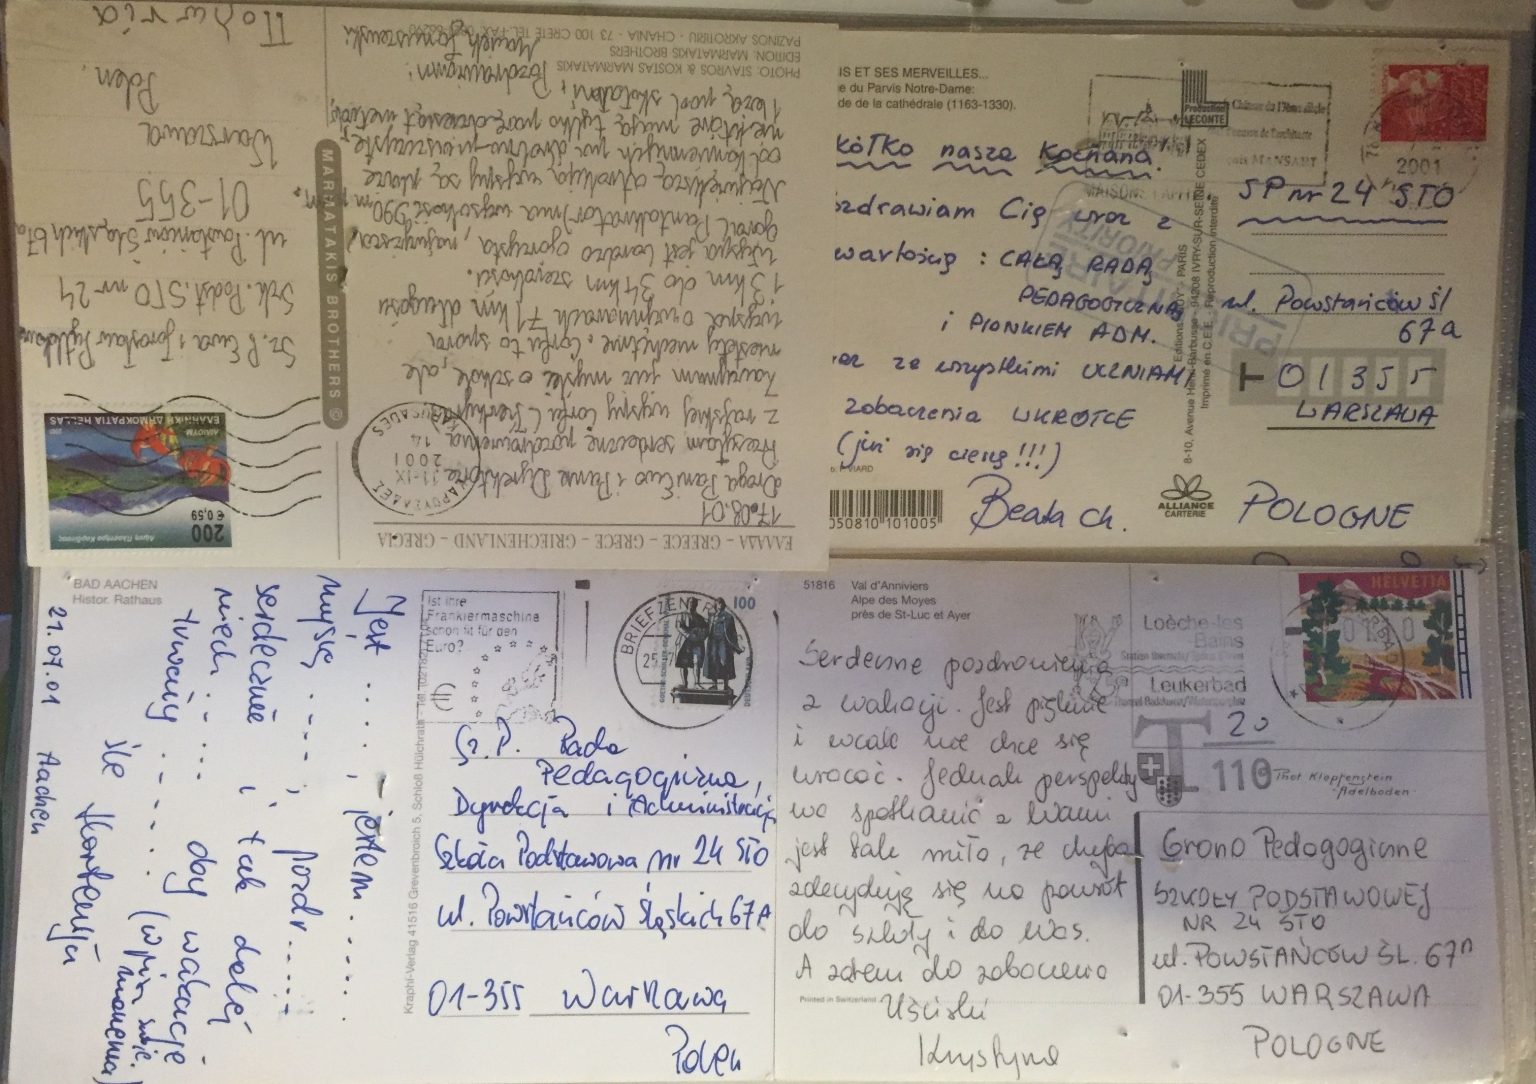 ΕΛΛΑΔΑ – GREECE – GRECE – GRIECHENLAND – GRECIA
17.08.01
Droga Pani Ewo i Panie Dyrektorze
Przesyłam serdeczne pozdrowienia
z rajskiej wyspy Corfu (Kerkyra).
Zaczynam już myśleć o szkole, ale
niestety niechętnie. Corfu to spora
wyspa o wymiarach 71 km długości
13 km do 34 km szerokości.
Wyspa jest bardzo górzysta, najwyższa
góra Pantokrator ma wysokość 990 m.
Największą atrakcją wyspy są plaże
od kamiennych po drobno-piaszczyste,
niektóre mają tylko parędziesiąt metrów
i leżą pod skałami. Pozdrawiam.
PHOTO: STAVROS & KOSTAS MARMATAKIS
EDITION: MARMATAKIS BROTHERS
PAZINOS AKROTIRIU · CHANIA · 73 100 CRETE
MARMATAKIS BROTHERS ©
200
€ 0,59
ΕΛΛΗΝΙΚΗ ΔΗΜΟΚΡΑΤΙΑ HELLAS
2001
Sz. P. Ewa i Jarosław
Szk. Podst. STO nr 24
ul. Powstańców Śląskich 67a
01-355
Warszawa
Polen
IS ET SES MERVEILLES...
e du Parvis Notre-Dame:
de de la cathédrale (1163-1330).
Production
LECONTE
2001
kółko nasze Kochane!
ozdrawiam Cię wraz z
wartością : CAŁĄ RADĄ
PEDAGOGICZNĄ
i PIONKIEM ADM.
raz ze wszystkimi UCZNIAMI
zobaczenia WKRÓTCE
(już się cieszę !!!)
Beata Ch.
050810 101005
8-10, Avenue Henri-Barbusse - 94208 IVRY-SUR-SEINE CEDEX
Imprimé en C.E.E. Reproduction interdite
PRIORITAIRE
PRIORITY
ALLIANCE
CARTERIE
SP nr 24 STO
ul. Powstańców Śl
67a
01355
WARSZAWA
POLOGNE
BAD AACHEN
Histor. Rathaus
21.07.01 Aachen
Jest ...., jestem .....
myślę ....; pozdr.....
serdecznie i tak dalej
niech ..... aby wakacje
trwały .....
śle Hortensja
Kraphi-Verlag 41516 Grevenbroich 5, Schloß Hülchrath
Ist Ihre
Frankiermaschine
schon fit für den
Euro?
BRIEFZENTRUM
100
Sz. P. Rada
Pedagogiczna,
Dyrekcja i Administracja
Szkoła Podstawowa nr 24 STO
ul. Powstańców Śląskich 67A
01-355 Warszawa
Polen
51816 Val d'Anniviers
Alpe des Moyes
près de St-Luc et Ayer
Serdeczne pozdrowienia
z wakacji. Jest pięknie
i wcale nie chce się
wracać. Jednak perspekty
wa spotkania z Wami
jest tak miła, że chyba
zdecyduję się na powrót
do szkoły i do Was.
A zatem do zobaczenia
Uściski
Krystyna
Printed in Switzerland
Loèche-les
-Bains
Leukerbad
HELVETIA
T 20
110
Thot Klopfenstein
Adelboden
Grono Pedagogiczne
SZKOŁY PODSTAWOWEJ
NR 24 STO
ul. POWSTAŃCÓW ŚL. 67A
01-355 WARSZAWA
POLOGNE